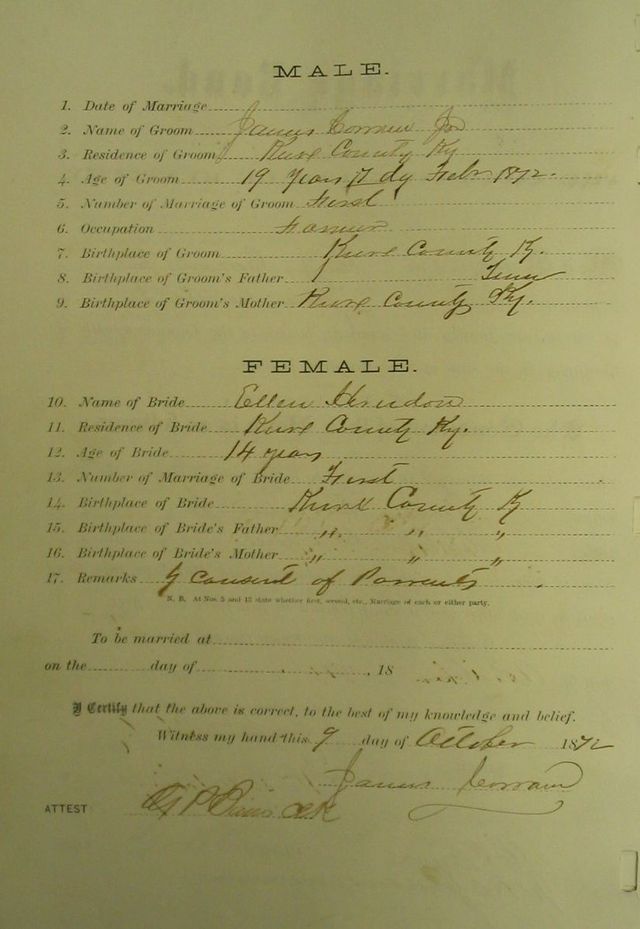 MALE.
1. Date of Marriage
2. Name of Groom James Jr
3. Residence of Groom Knox County Ky
4. Age of Groom 19 years 17 dy Feb 1872.
5. Number of Marriage of Groom First
6. Occupation Farmer
7. Birthplace of Groom Knox County Ky.
8. Birthplace of Groom's Father Tenn
9. Birthplace of Groom's Mother Knox County Ky.
FEMALE.
10. Name of Bride Ellen Herndon
11. Residence of Bride Knox County Ky.
12. Age of Bride 14 years
13. Number of Marriage of Bride First
14. Birthplace of Bride Knox County Ky
15. Birthplace of Bride's Father " " "
16. Birthplace of Bride's Mother " " "
17. Remarks By consent of Parrents
N. B. At Nos. 5 and 13 state whether first, second, etc., Marriage of each or either party.
To be married at
on the day of , 18
I Certify that the above is correct, to the best of my knowledge and belief.
Witness my hand this 9 day of October 1872
James
ATTEST